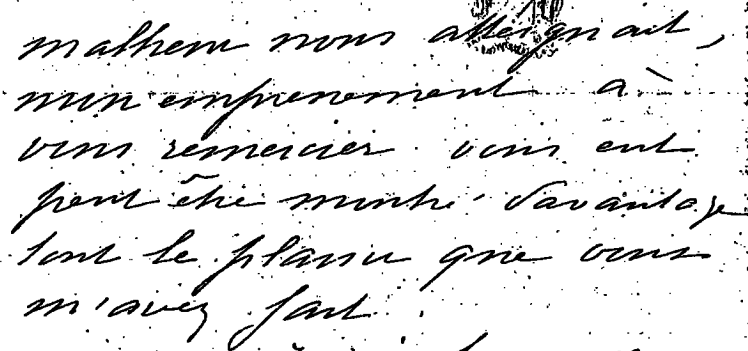 malheur nous atteignait,
mon empressement à
vous remercier vous eut
peut être montré davantage
tout le plaisir que vous
m'avez fait.